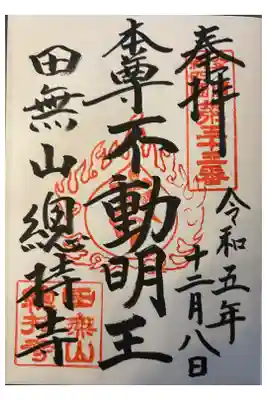 奉拝
令和五年
十二月八日
本尊不動明王
田無山總持寺
田無山
總持寺